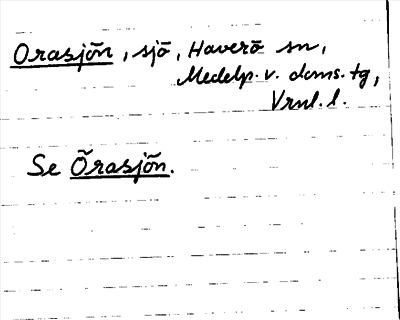 Orasjön, sjö, Haverö sn,
Medelp. v. doms. tg,
Vrnl. l.
Se Örasjön.